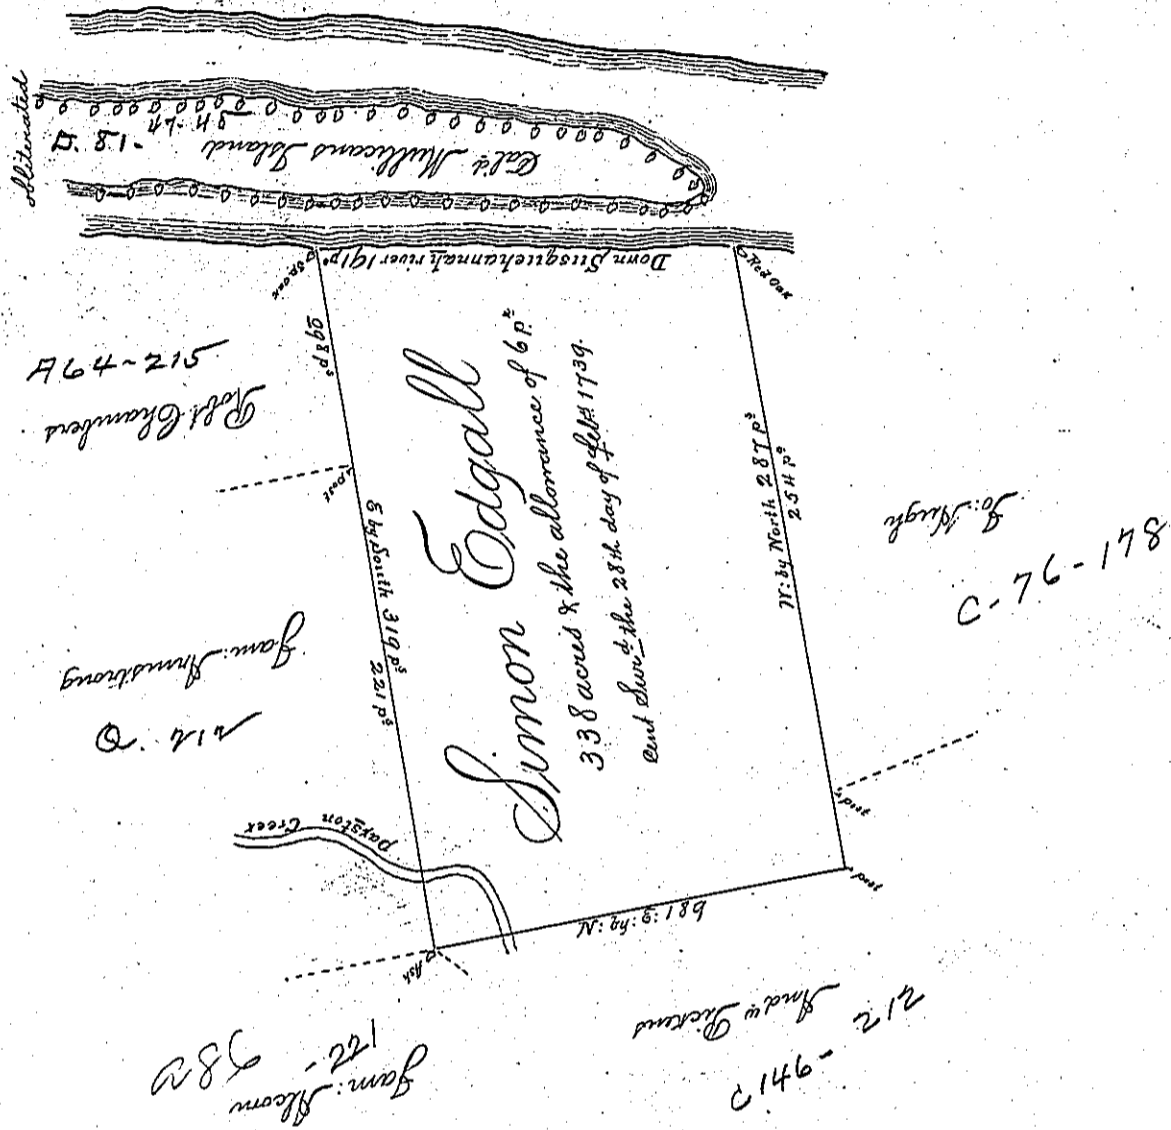 obliterated
D. 81-
Cal'd Mullicans Island
Down Susquehannah river 191 p.s
Sp. oak
Red Oak
98 p.s
A64-215
Rob.t Chambers
post
E by South 319 p.s
221 p.s
Jam: Armstrong
Simon Edgall
338 acres & the allowance of 6 p.r
Cent Surv.d the 28th day of feb.y 1739.
W: by North 287 p.s
254 p.s
Jo: Hugh
C-76-178
paxston Creek
post
post
N: by: E: 189
Ash
Jam: Alcorn
And.w Pickens
C146-
212